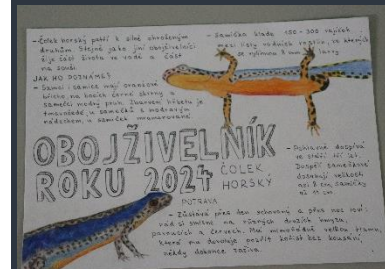 - Čolek horský patří k silně ohroženým
druhům. Stejně jako jiní obojživelníci
žije část života ve vodě a část
na souši.
JAK HO POZNÁME?
- Samci i samice mají oranžové
břicho, na bocích černé skvrny a
samečci modrý pruh. Zbarvení hřbetu je
tmavošedé, u samečků s modravým
nádechem, u samiček mramorované.
- Samička klade 150 - 300 vajíček
mezi listy vodních rostlin, ze kterých
se vylíhnou 8 mm larvy.
OBOJŽIVELNÍK
ROKU 2024
ČOLEK
HORSKÝ
- Pohlavně dospívá
ve stáří tří let.
Dospělí
dorůstají velikosti
asi 8 cm, samičky
až 11 cm.
POTRAVA
- Zůstává přes den schovaný a přes noc loví
rád si smlsne na různých druzích hmyzu,
pavoucích a červech. Má mimořádně velkou tlamu,
která mu dovoluje pozřít kořist bez kousání,
někdy dokonce zaživa.